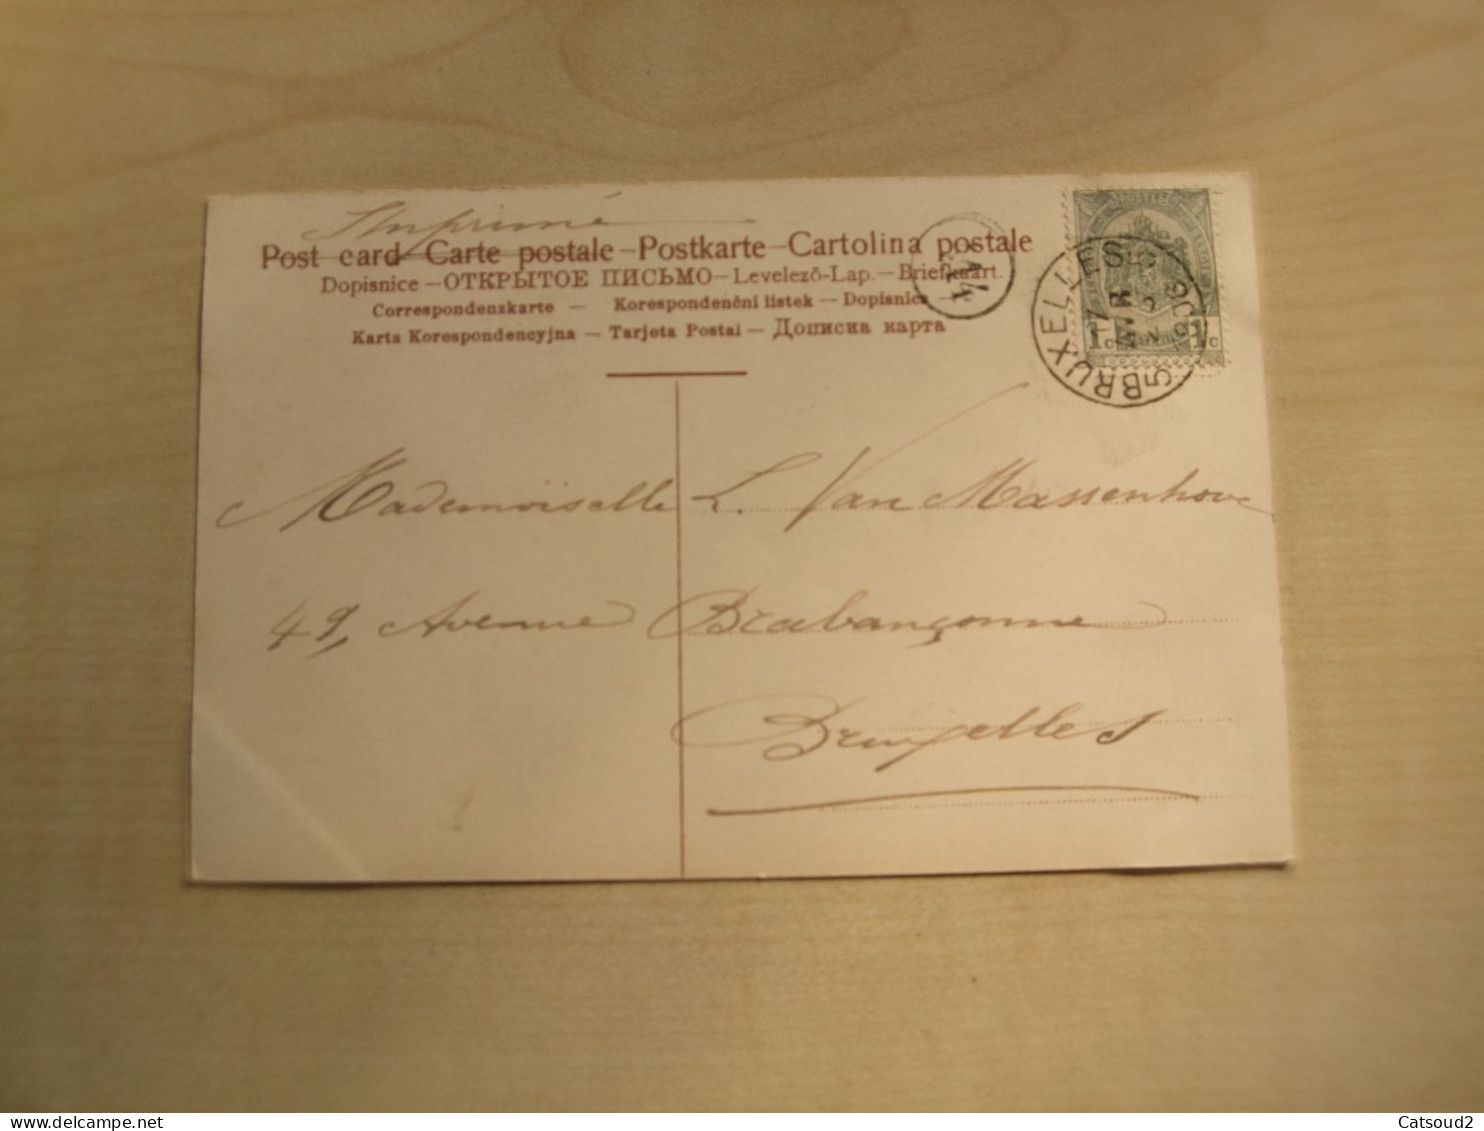 Imprimé
Post card – Carte postale – Postkarte – Cartolina postale
Dopisnice – ОТКРЫТОЕ ПИСЬМО – Levelező-Lap. – Briefkaart.
Correspondenzkarte – Korespondenční listek – Dopisnica –
Karta Korespondencyjna – Tarjeta Postal – Дописна карта
BRUXELLES 5
1906
1c 1c
Mademoiselle L. Van Massenhove
49, Avenue Brabançonne
Bruxelles
Catsoud2